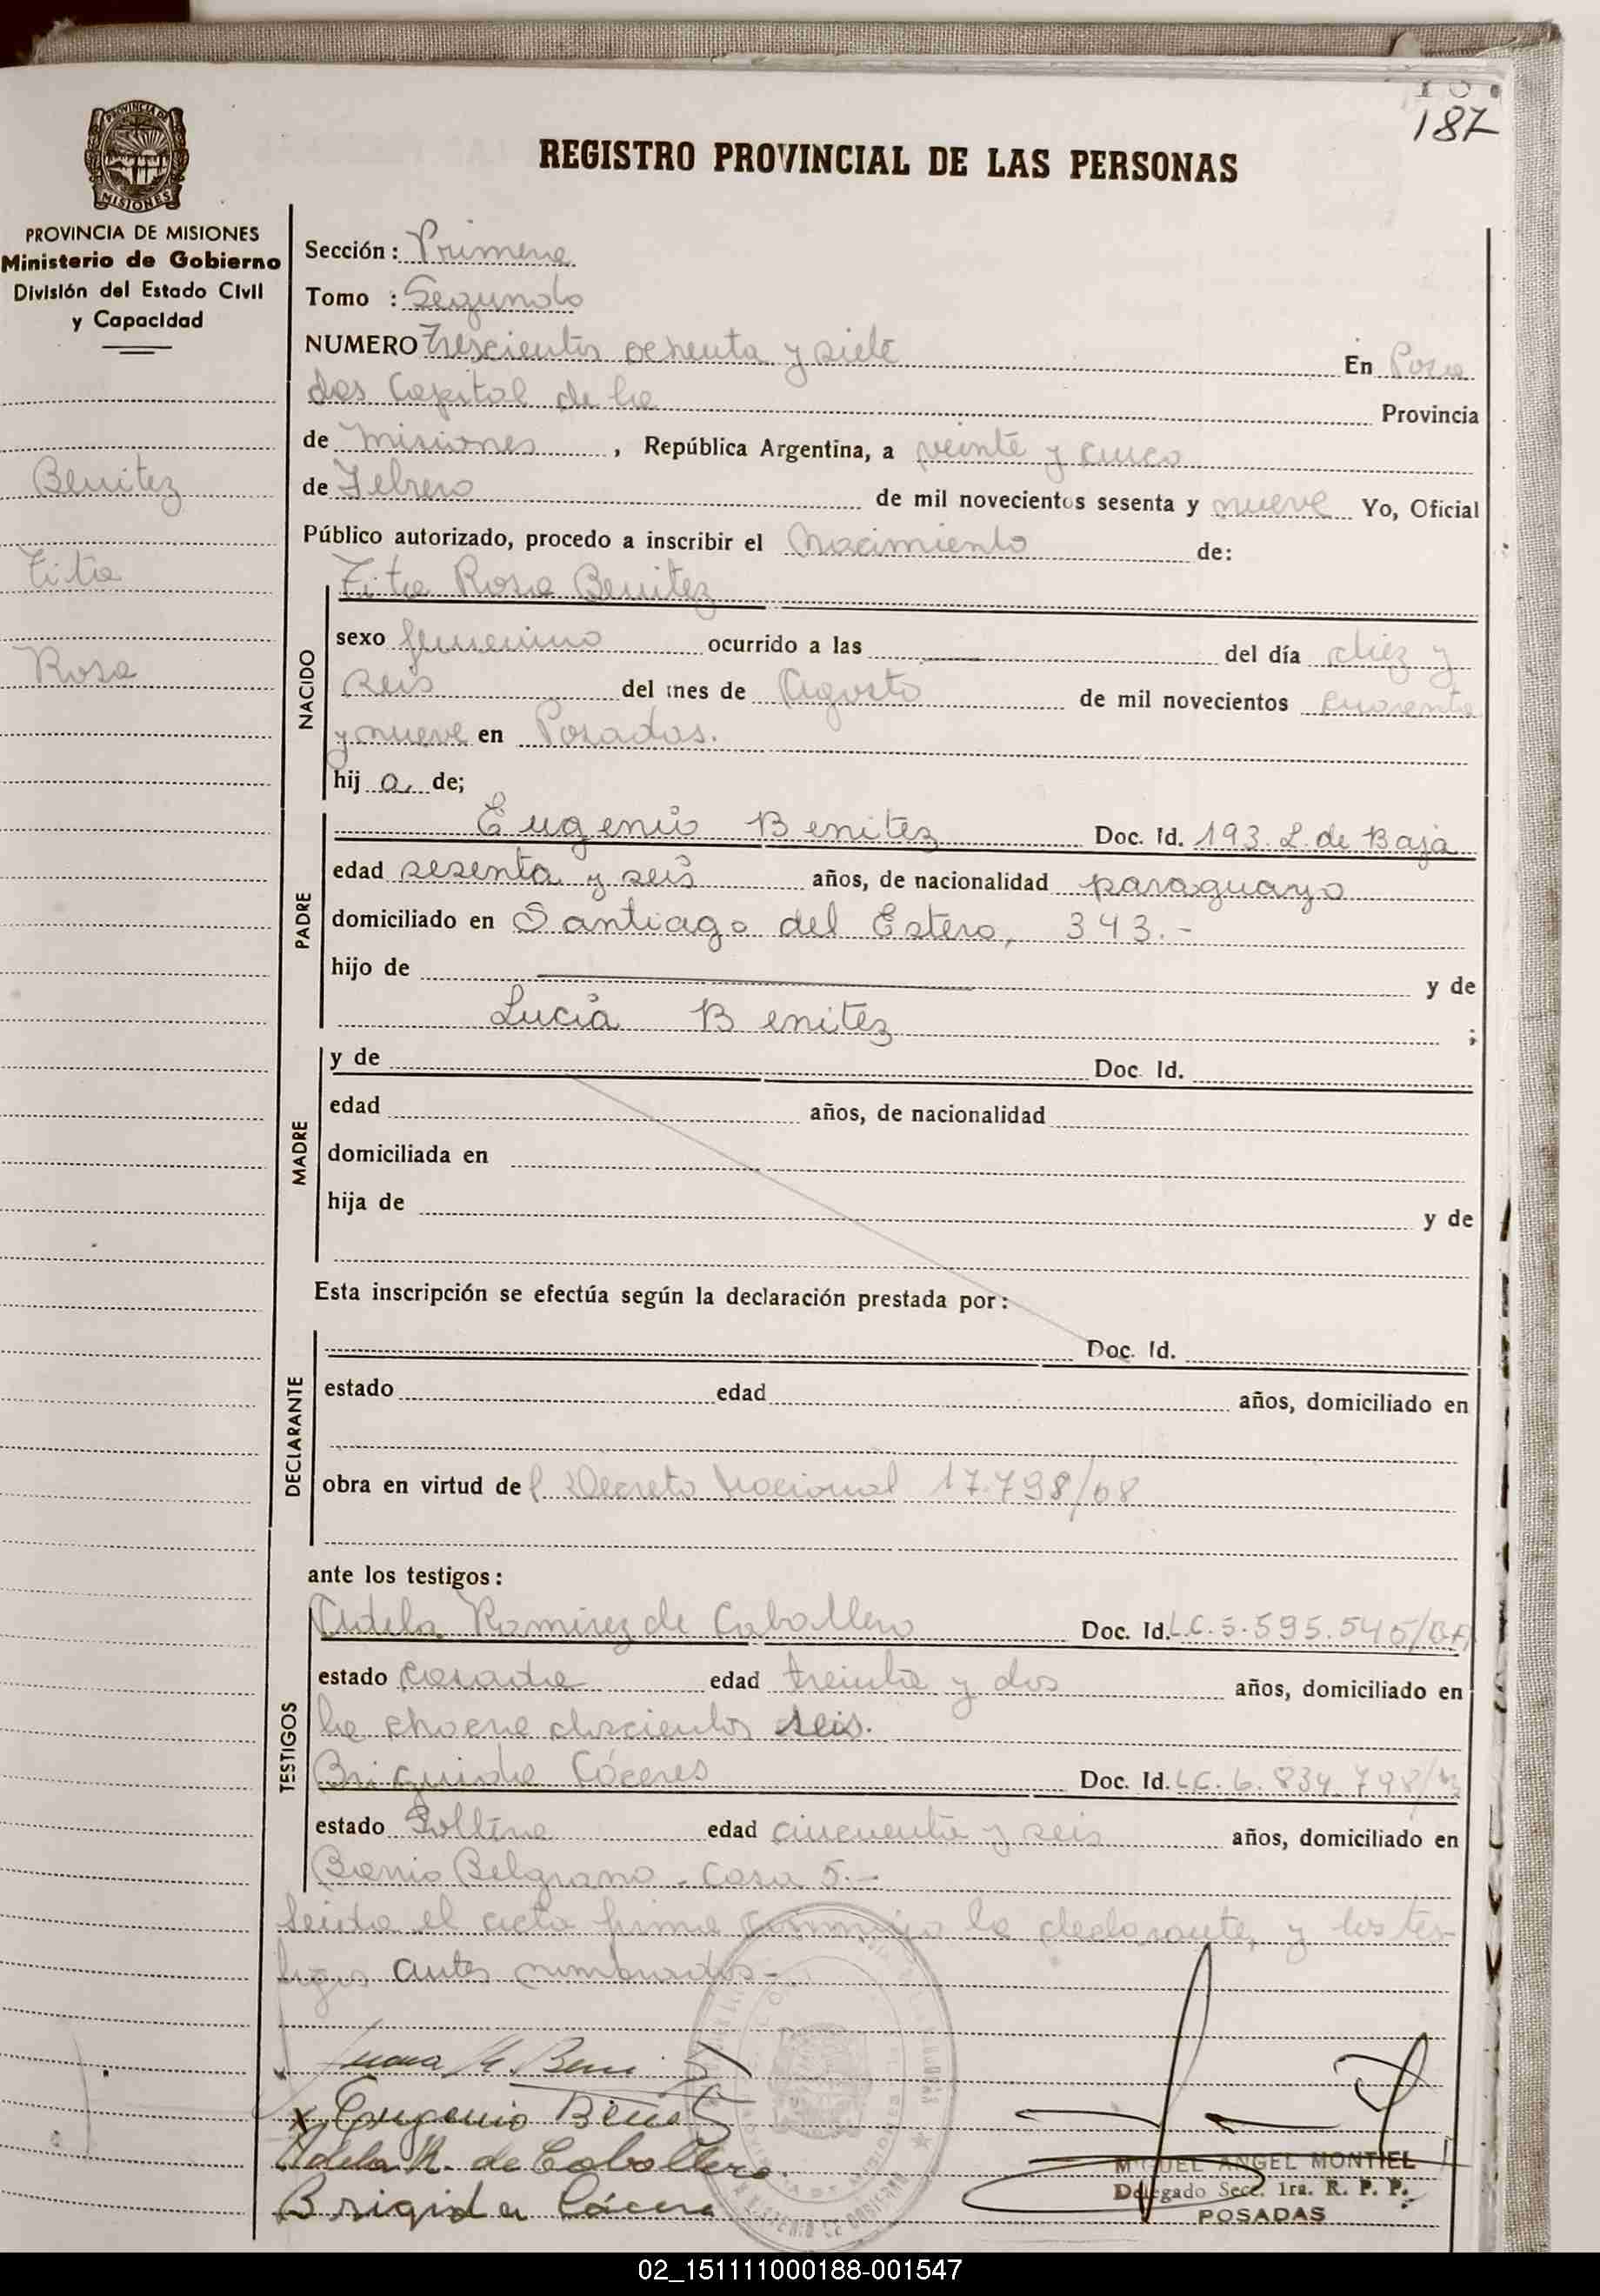 187
REGISTRO PROVINCIAL DE LAS PERSONAS
PROVINCIA DE
MISIONES
PROVINCIA DE MISIONES
Ministerio de Gobierno
División del Estado Civil
y Capacidad
Benitez
Tita
Rosa
Sección: Primera
Tomo : Segundo
NUMERO Trescientos ochenta y siete En Posa
das Capital de la Provincia
de Misiones, República Argentina, a veinte y cinco
de Febrero de mil novecientos sesenta y nueve Yo, Oficial
Público autorizado, procedo a inscribir el Nacimiento de:
NACIDO
Tita Rosa Benitez
sexo femenino ocurrido a las del día diez y
seis del mes de Agosto de mil novecientos cuarenta
y nueve en Posadas.
hij a, de;
PADRE
Eugenio Benitez Doc. Id. 193. L. de Baja
edad sesenta y seis años, de nacionalidad paraguayo
domiciliado en Santiago del Estero, 343.-
hijo de y de
Lucia Benitez ;
MADRE
y de Doc. Id.
edad años, de nacionalidad
domiciliada en
hija de y de
Esta inscripción se efectúa según la declaración prestada por:
DECLARANTE
Doc. Id.
estado edad años, domiciliado en
obra en virtud de l Decreto Nacional 17.798/68
ante los testigos:
TESTIGOS
Adela Ramirez de Caballero Doc. Id. L.C. 5.595.545/
estado casada edad treinta y dos años, domiciliado en
la doscientos seis.
Briguida Cáceres Doc. Id. L.C. 6.834.798/
estado Soltera edad cincuenta y seis años, domiciliado en
Barrio Belgrano - casa 5.-
Leida el acta firma conmigo la declarante, y los tes-
tigos antes nombrados-
Juana Benitez
x Eugenio Benitez
Adela R. de Caballero.
Brigida Cácere
MIGUEL ANGEL MONTIEL
Delegado Secc. 1ra. R. P. P.
POSADAS
02_151111000188-001547